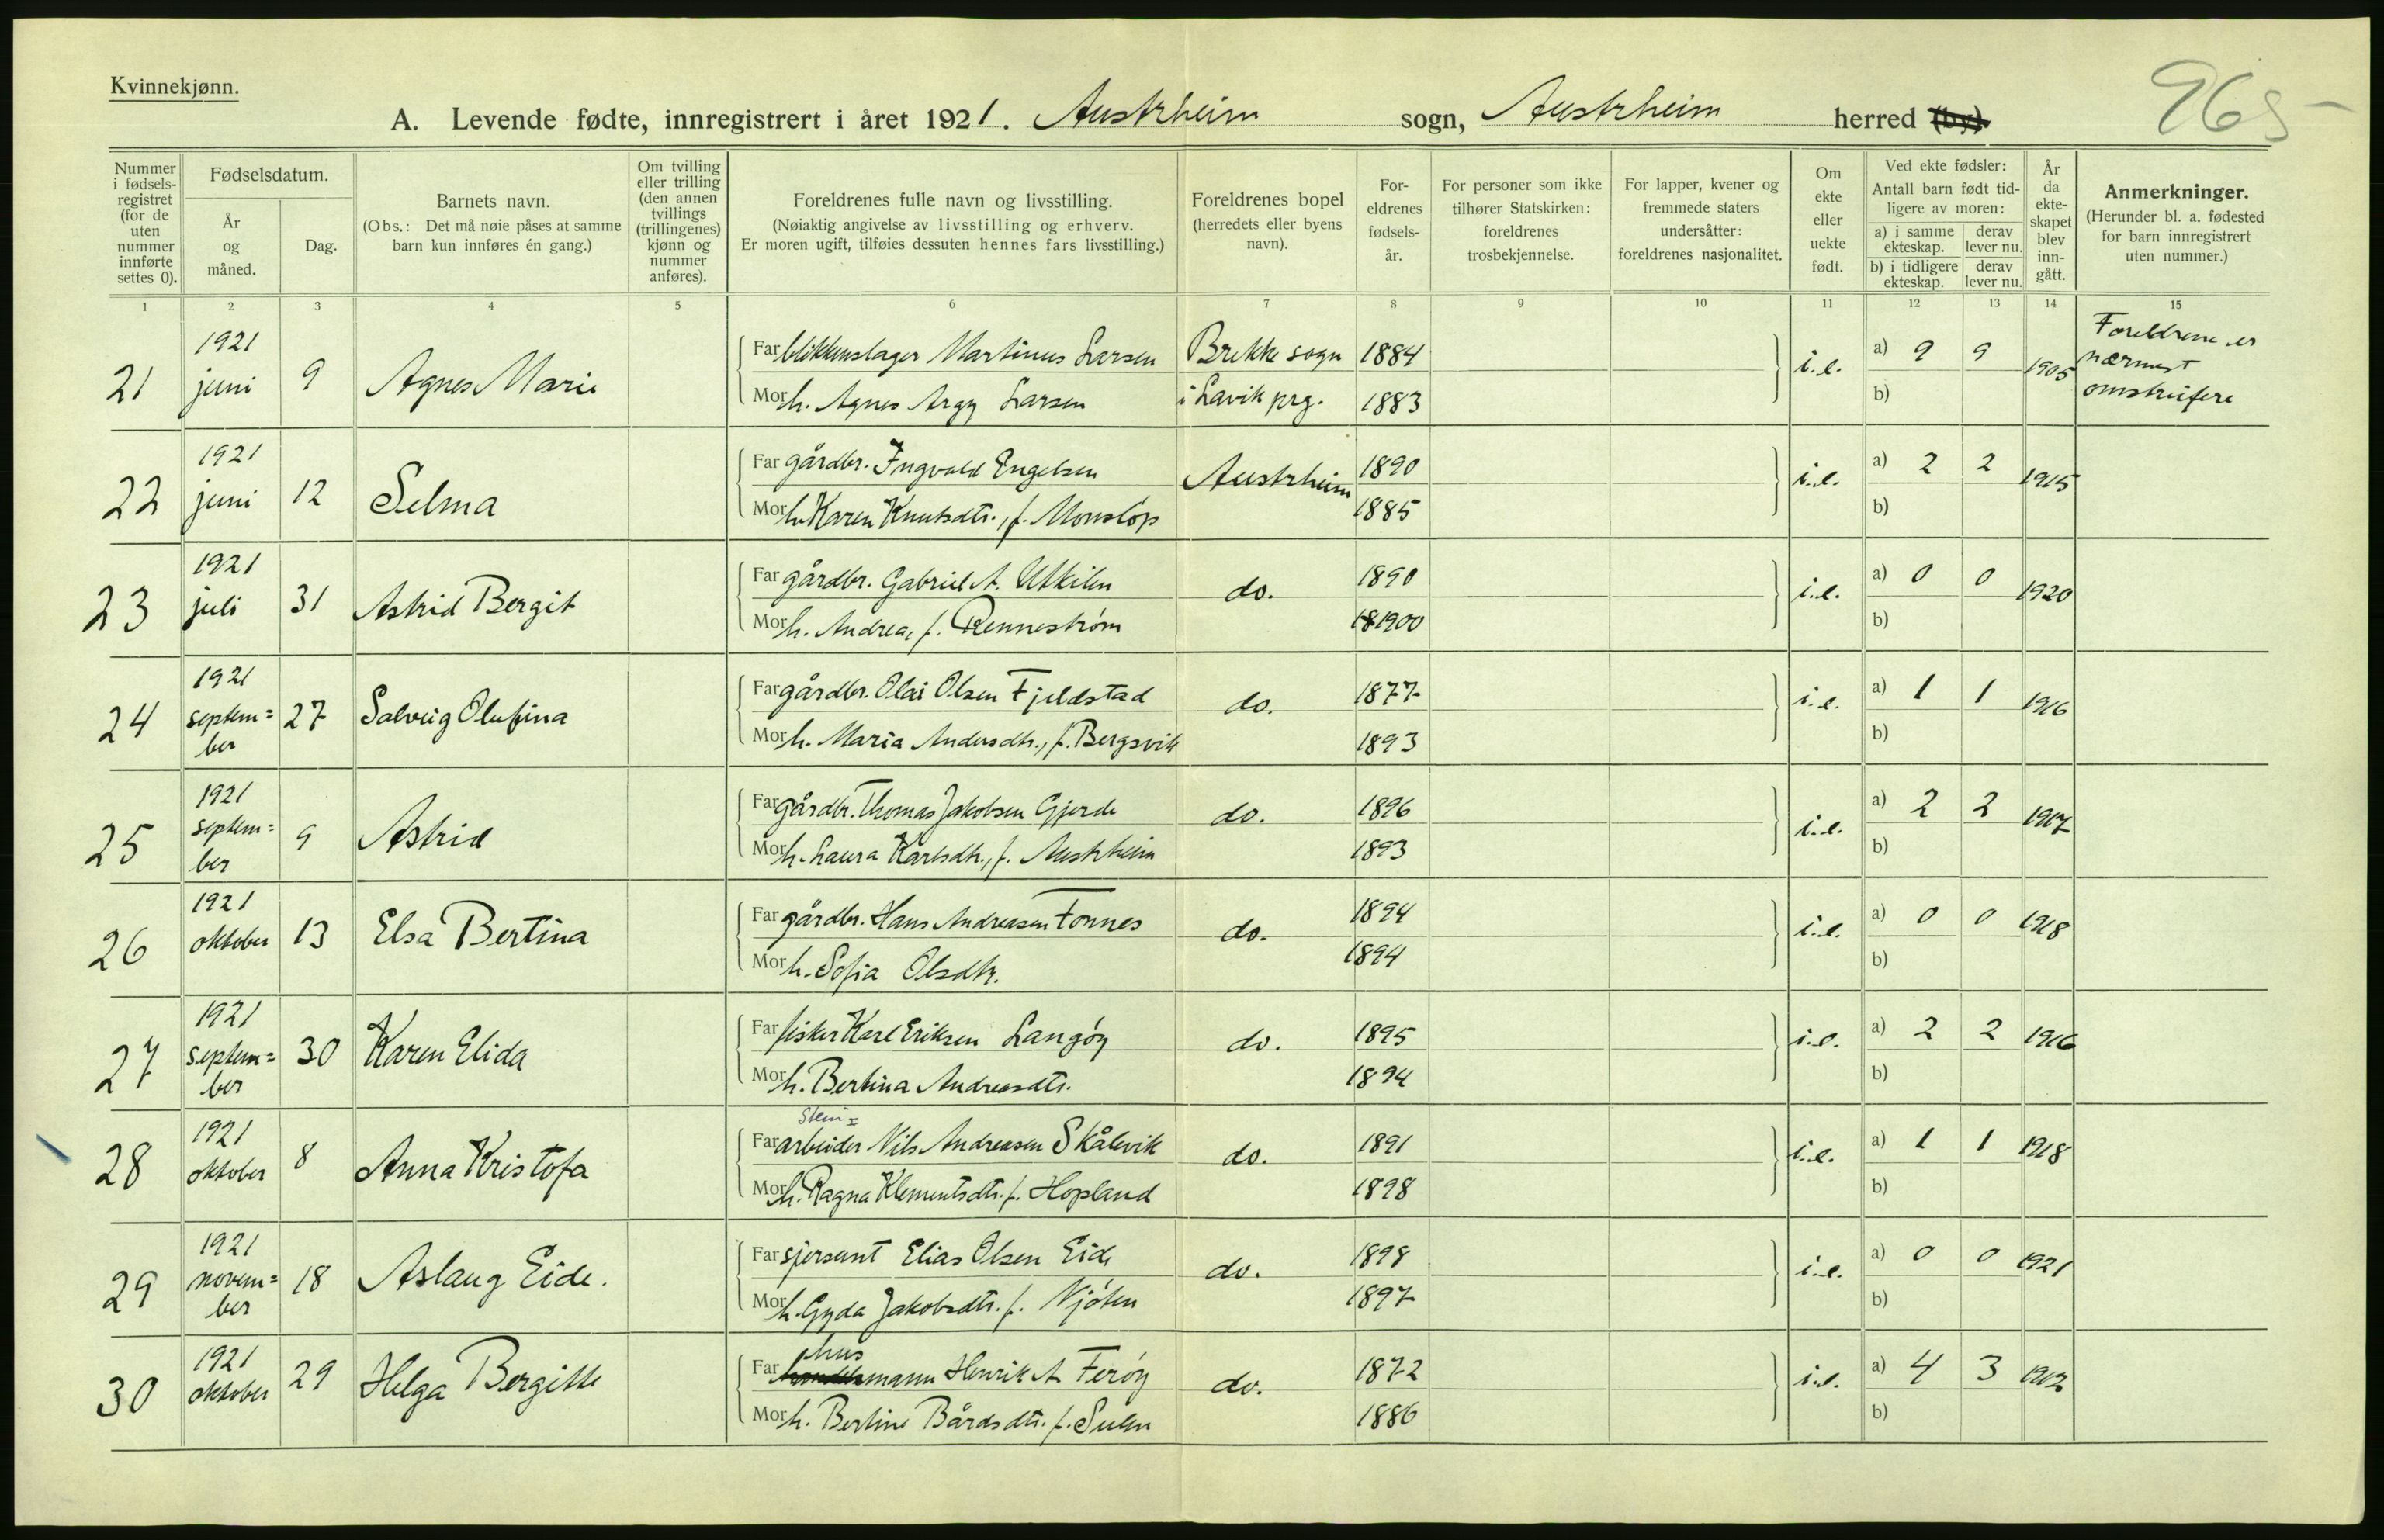 Kvinnekjønn.
A. Levende fødte, innregistrert i året 1921. Austrheim sogn, Austrheim herred (by).
965
Nummer i fødsels-registret (for de uten nummer innførte settes 0).
Fødselsdatum.
År og måned.
Dag.
Barnets navn.
(Obs.: Det må nøie påses at samme barn kun innføres én gang.)
Om tvilling eller trilling (den annen tvillings (trillingenes) kjønn og nummer anføres).
Foreldrenes fulle navn og livsstilling.
(Nøiaktig angivelse av livsstilling og erhverv.
Er moren ugift, tilføies dessuten hennes fars livsstilling.)
Foreldrenes bopel (herredets eller byens navn).
For-eldrenes fødsels-år.
For personer som ikke tilhører Statskirken: foreldrenes trosbekjennelse.
For lapper, kvener og fremmede staters undersåtter: foreldrenes nasjonalitet.
Om ekte eller uekte født.
Ved ekte fødsler:
Antall barn født tid-ligere av moren:
a) i samme ekteskap. derav lever nu.
b) i tidligere ekteskap. derav lever nu.
År da ekte-skapet blev inn-gått.
Anmerkninger.
(Herunder bl. a. fødested for barn innregistrert uten nummer.)
1 2 3 4 5 6 7 8 9 10 11 12 13 14 15
21 1921 juni 9 Agnes Marie
Far blikkenslager Martinus Larsen Brekke sogn 1884 i.e. a) 9 9 1905 Foreldrene er nærmest omstreifere
Mor h. Agnes Argy Larsen i Lavik prg. 1883 b)
22 1921 juni 12 Selma
Far gårdbr. Ingvald Engelsen Austrheim 1890 i.e. a) 2 2 1915
Mor h. Karen Knutsdtr., f. Monsløp 1885 b)
23 1921 juli 31 Astrid Bergit
Far gårdbr. Gabriel A. Utkilen do. 1890 i.e. a) 0 0 1920
Mor h. Andrea, f. Rennestrøm 181900 b)
24 1921 septem=ber 27 Solveig Olufina
Far gårdbr. Olai Olsen Fjeldstad do. 1877 i.e. a) 1 1 1916
Mor h. Maria Andersdtr., f. Bergsvik 1893 b)
25 1921 septem=ber 9 Astrid
Far gårdbr. Thomas Jakobsen Gjerde do. 1896 i.e. a) 2 2 1917
Mor h. Laura Karlsdtr., f. Austrheim 1893 b)
26 1921 oktober 13 Elsa Bertina
Far gårdbr. Hans Andreasen Fonnes do. 1894 i.e. a) 0 0 1918
Mor h. Sofia Olsdtr. 1894 b)
27 1921 septem=ber 30 Karen Elida
Far fisker Karl Eriksen Langøy do. 1895 i.e. a) 2 2 1916
Mor h. Bertina Andreasdtr. 1894 b)
28 1921 oktober 8 Anna Kristofa
Stein=
Far arbeider Nils Andreasen Skålevik do. 1891 i.e. a) 1 1 1918
Mor h. Ragna Klementsdtr. f. Hopland 1898 b)
29 1921 novem=ber 18 Aslaug Eide.
Far sjersant Elias Olsen Eide do. 1898 i.e. a) 0 0 1921
Mor h. Gyda Jakobsdtr. f. Njøten 1897 b)
30 1921 oktober 29 Helga Bergitte
hus
Far mann Henrik A. Ferøy do. 1872 i.e. a) 4 3 1902
Mor h. Bertine Bårdsdtr. f. Sulen 1886 b)